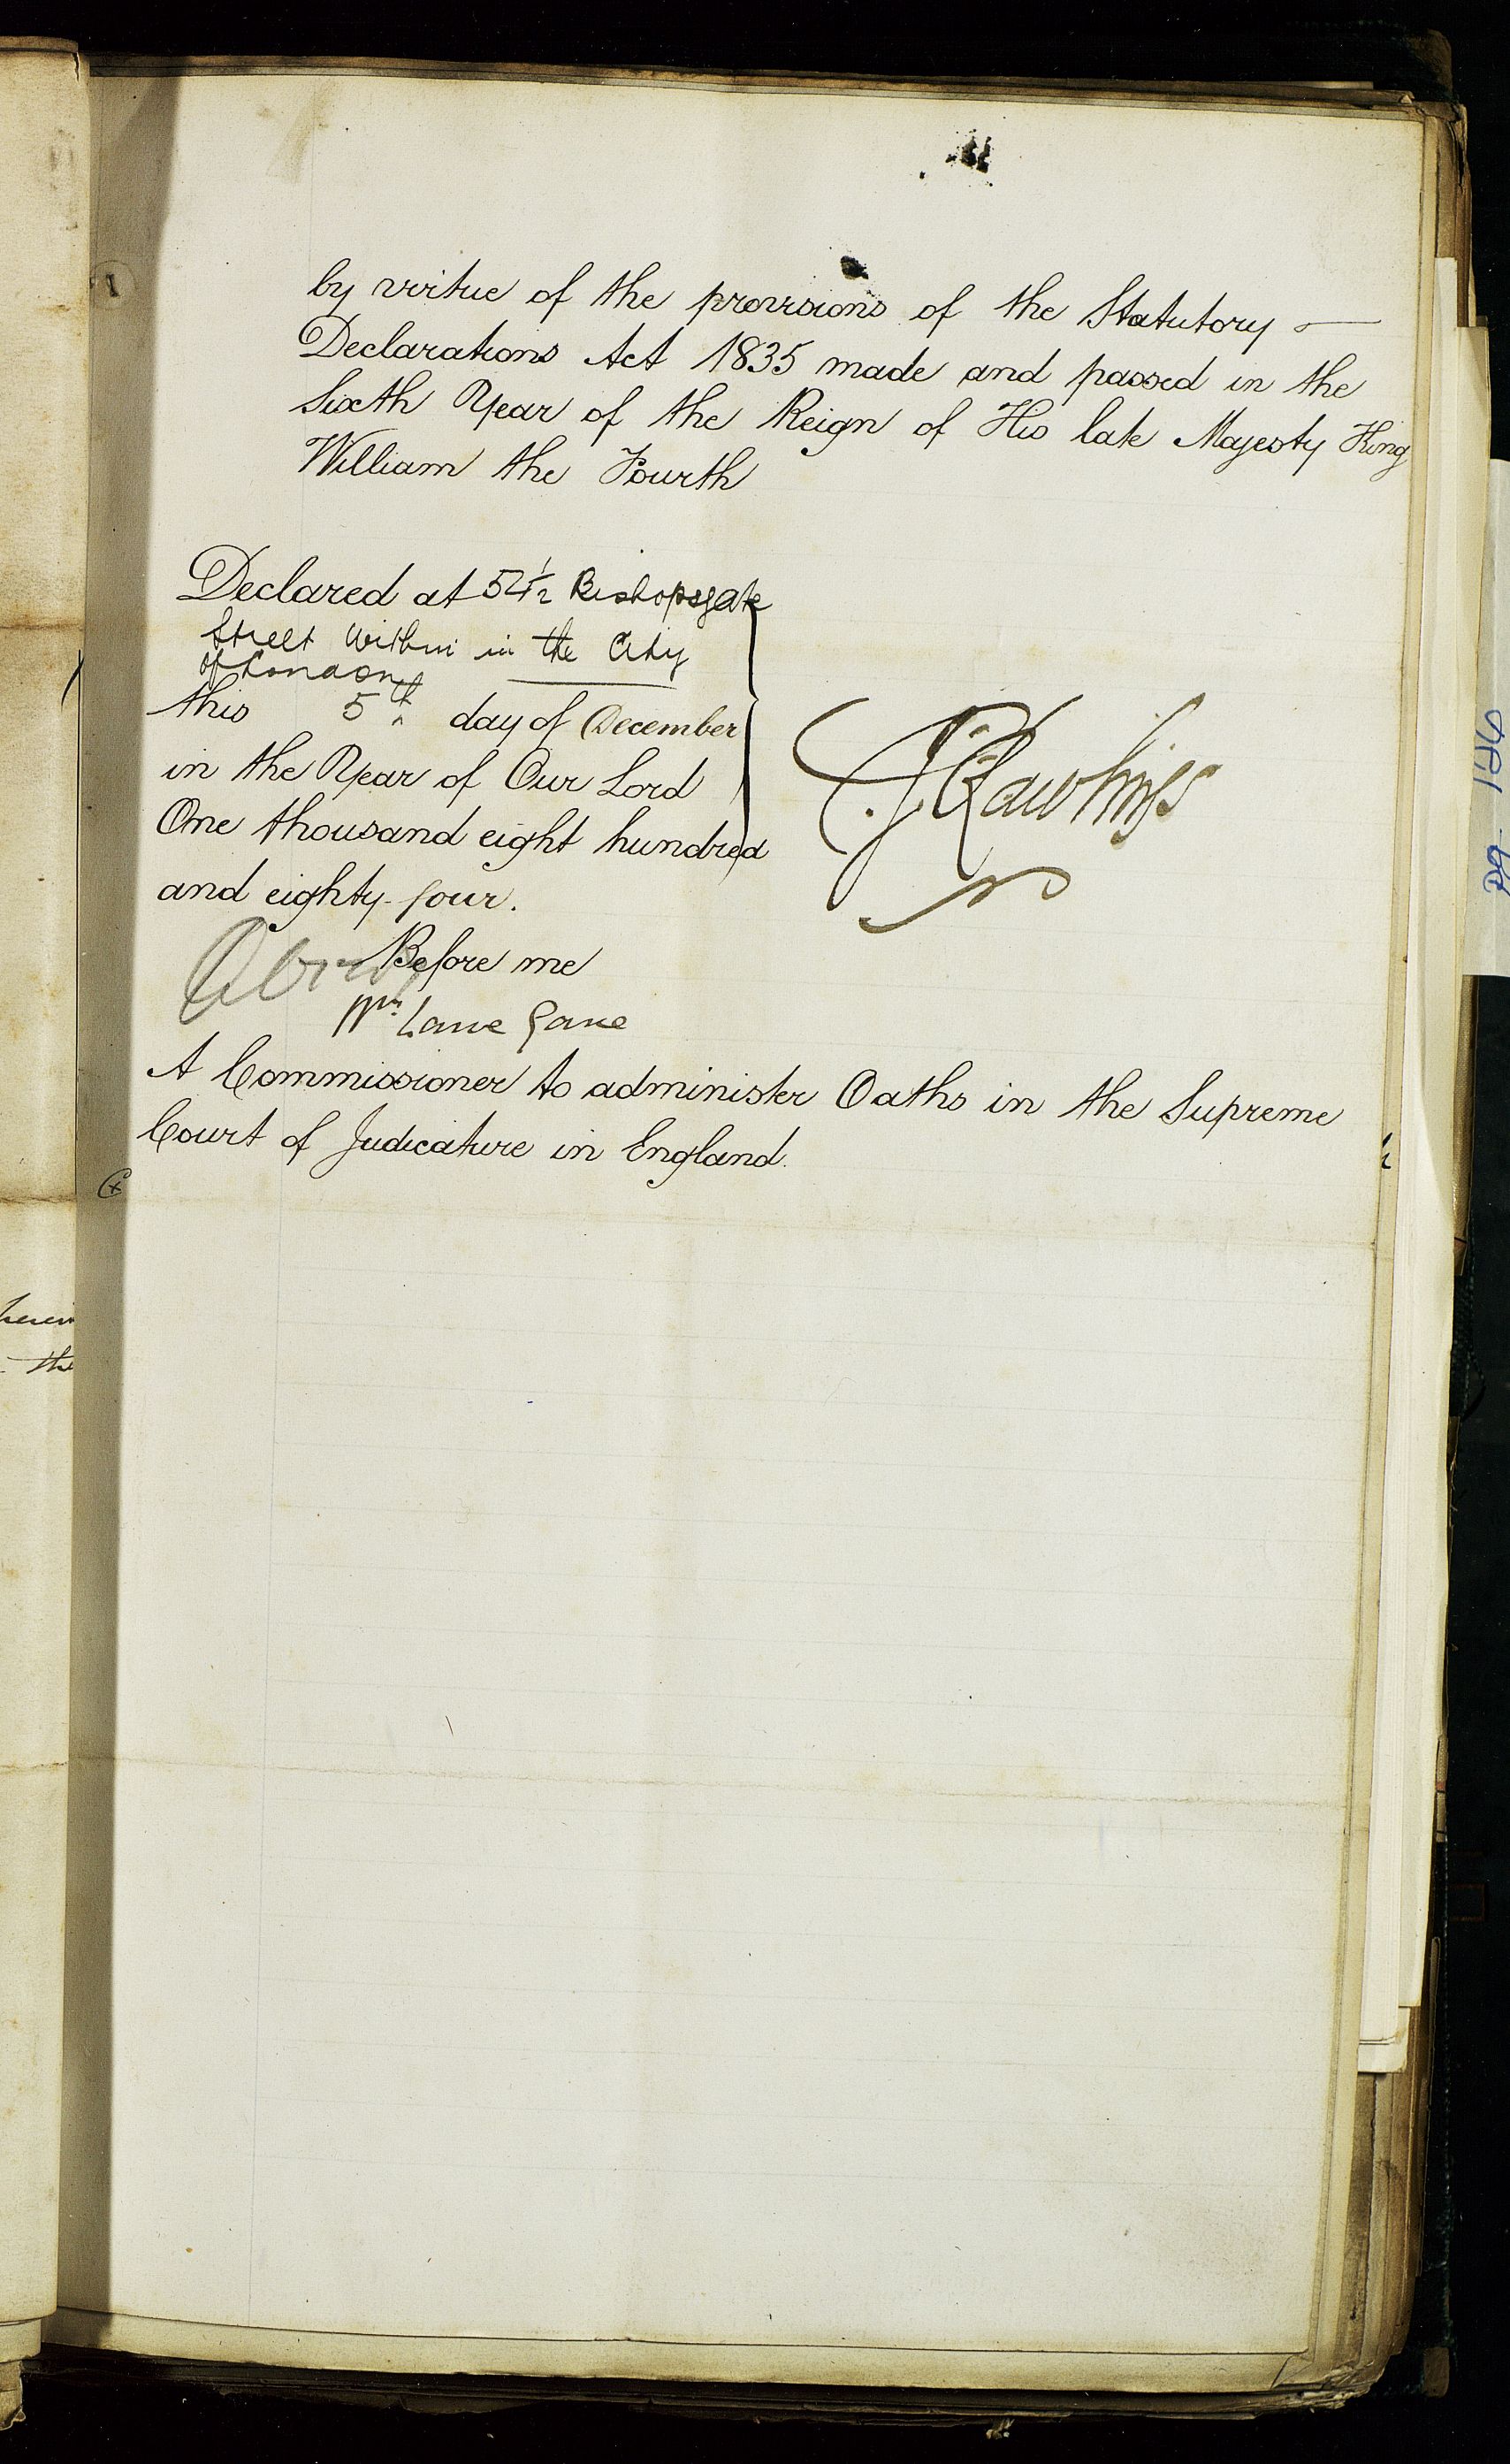 by virtue of the provisions of the Statutory —
Declarations Act 1835 made and passed in the
Sixth Year of the Reign of His late Majesty King
William the Fourth
Declared at 52½ Bishopsgate
Street Within in the City
of London
this 5th day of December
in the Year of Our Lord
One thousand eight hundred
and eighty-four.
J Rawlings
Before me
Wm Lane
A Commissioner to administer Oaths in the Supreme
Court of Judicature in England.
the
pg 146